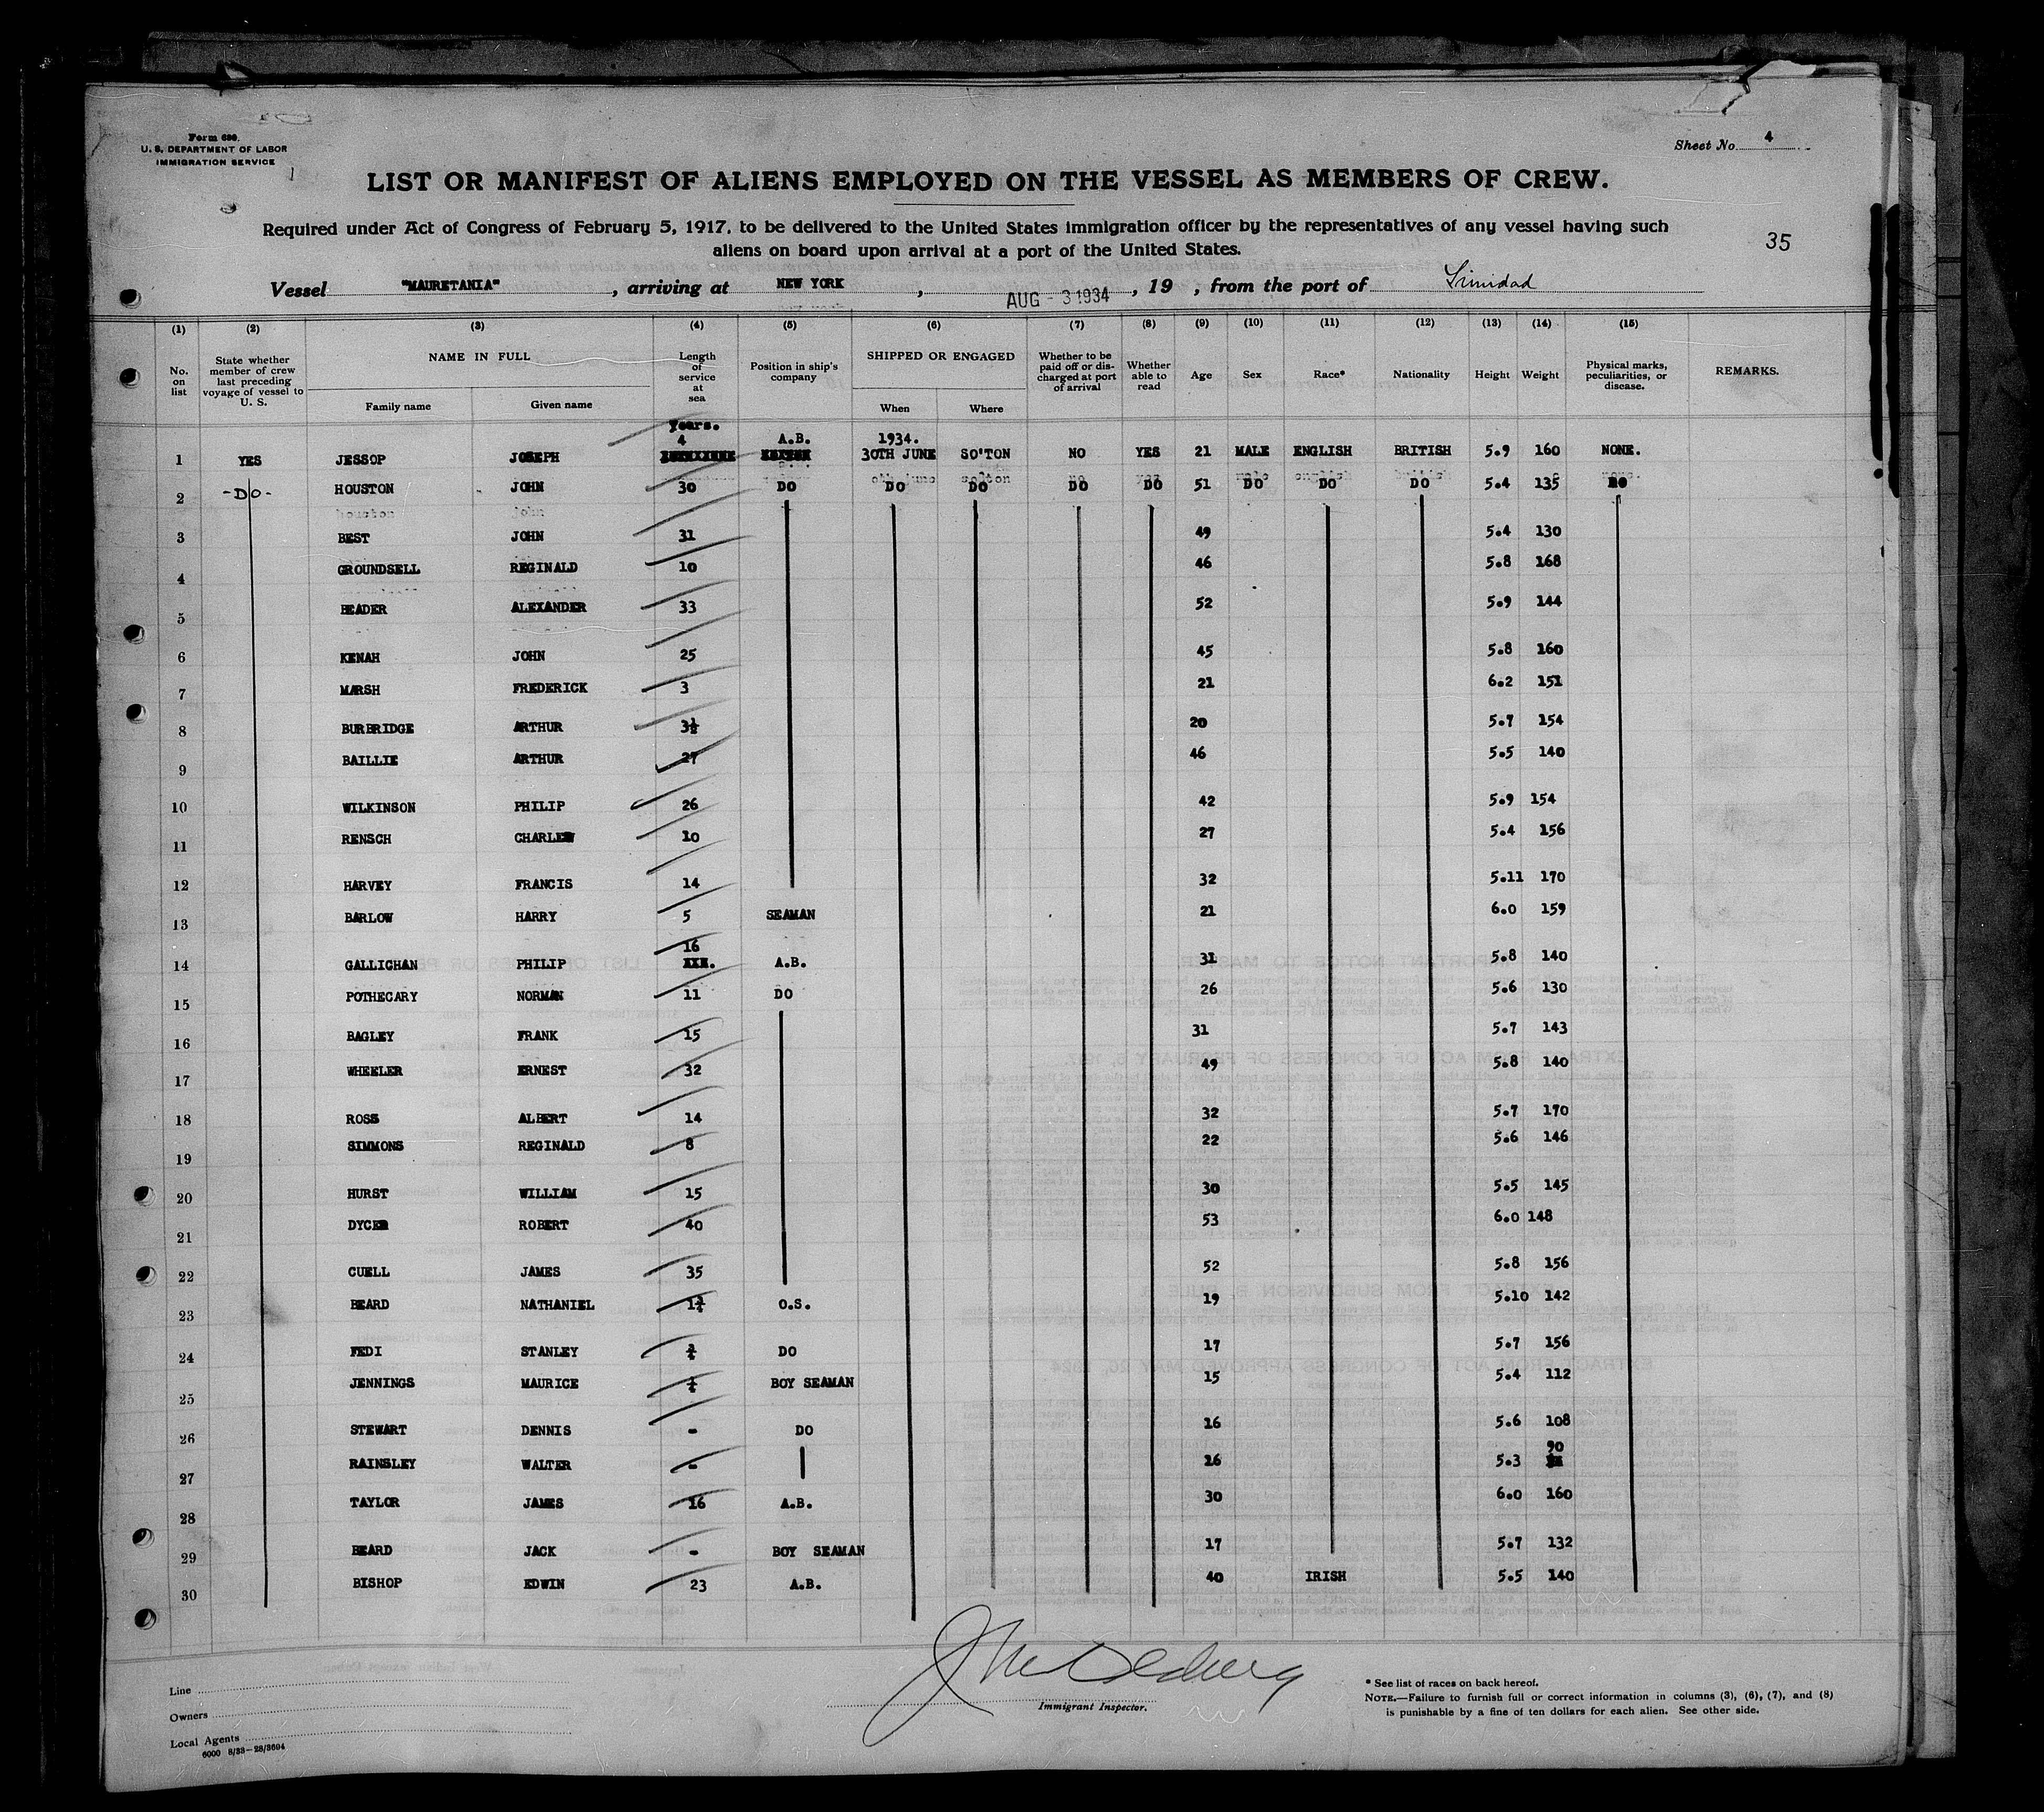 Form 680.
U. S. DEPARTMENT OF LABOR
IMMIGRATION SERVICE
Sheet No. 4
LIST OR MANIFEST OF ALIENS EMPLOYED ON THE VESSEL AS MEMBERS OF CREW.
Required under Act of Congress of February 5, 1917, to be delivered to the United States immigration officer by the representatives of any vessel having such
aliens on board upon arrival at a port of the United States.
35
Vessel "MAURETANIA", arriving at NEW YORK, AUG - 3 1934, 19 , from the port of Trinidad
(1) (2) (3) (4) (5) (6) (7) (8) (9) (10) (11) (12) (13) (14) (15)
No. on list State whether member of crew last preceding voyage of vessel to U. S. NAME IN FULL Family name Given name Length of service at sea Position in ship's company SHIPPED OR ENGAGED When Where Whether to be paid off or discharged at port of arrival Whether able to read Age Sex Race* Nationality Height Weight Physical marks, peculiarities, or disease. REMARKS.
Years.
1 YES JESSOP JOSEPH 4 A.B. 1934. 30TH JUNE SO'TON NO YES 21 MALE ENGLISH BRITISH 5.9 160 NONE.
2 -DO- HOUSTON JOHN 30 DO DO DO DO DO 51 DO DO DO 5.4 135 DO
3 BEST JOHN 31 49 5.4 130
4 GROUNDSELL REGINALD 10 46 5.8 168
5 BEADER ALEXANDER 33 52 5.9 144
6 KENAH JOHN 25 45 5.8 160
7 MARSH FREDERICK 3 21 6.2 151
8 BURBRIDGE ARTHUR 3½ 20 5.7 154
9 BAILLIE ARTHUR 27 46 5.5 140
10 WILKINSON PHILIP 26 42 5.9 154
11 RENSCH CHARLES 10 27 5.4 156
12 HARVEY FRANCIS 14 32 5.11 170
13 BARLOW HARRY 5 SEAMAN 21 6.0 159
14 GALLICHAN PHILIP 16 A.B. 31 5.8 140
15 POTHECARY NORMAN 11 DO 26 5.6 130
16 BAGLEY FRANK 15 31 5.7 143
17 WHEELER ERNEST 32 49 5.8 140
18 ROSS ALBERT 14 32 5.7 170
19 SIMMONS REGINALD 8 22 5.6 146
20 HURST WILLIAM 15 30 5.5 145
21 DYCER ROBERT 40 53 6.0 148
22 CUELL JAMES 35 52 5.8 156
23 BEARD NATHANIEL O.S. 19 5.10 142
24 FEDI STANLEY DO 17 5.7 156
25 JENNINGS MAURICE BOY SEAMAN 15 5.4 112
26 STEWART DENNIS - DO 16 5.6 108
27 RAINSLEY WALTER - 16 5.3 90
28 TAYLOR JAMES 16 A.B. 30 6.0 160
29 BEARD JACK - BOY SEAMAN 17 5.7 132
30 BISHOP EDWIN 23 A.B. 40 IRISH 5.5 140
Line
Owners
Local Agents
6000 8/33-28/3694
Immigrant Inspector.
* See list of races on back hereof.
NOTE.—Failure to furnish full or correct information in columns (3), (6), (7), and (8)
is punishable by a fine of ten dollars for each alien. See other side.